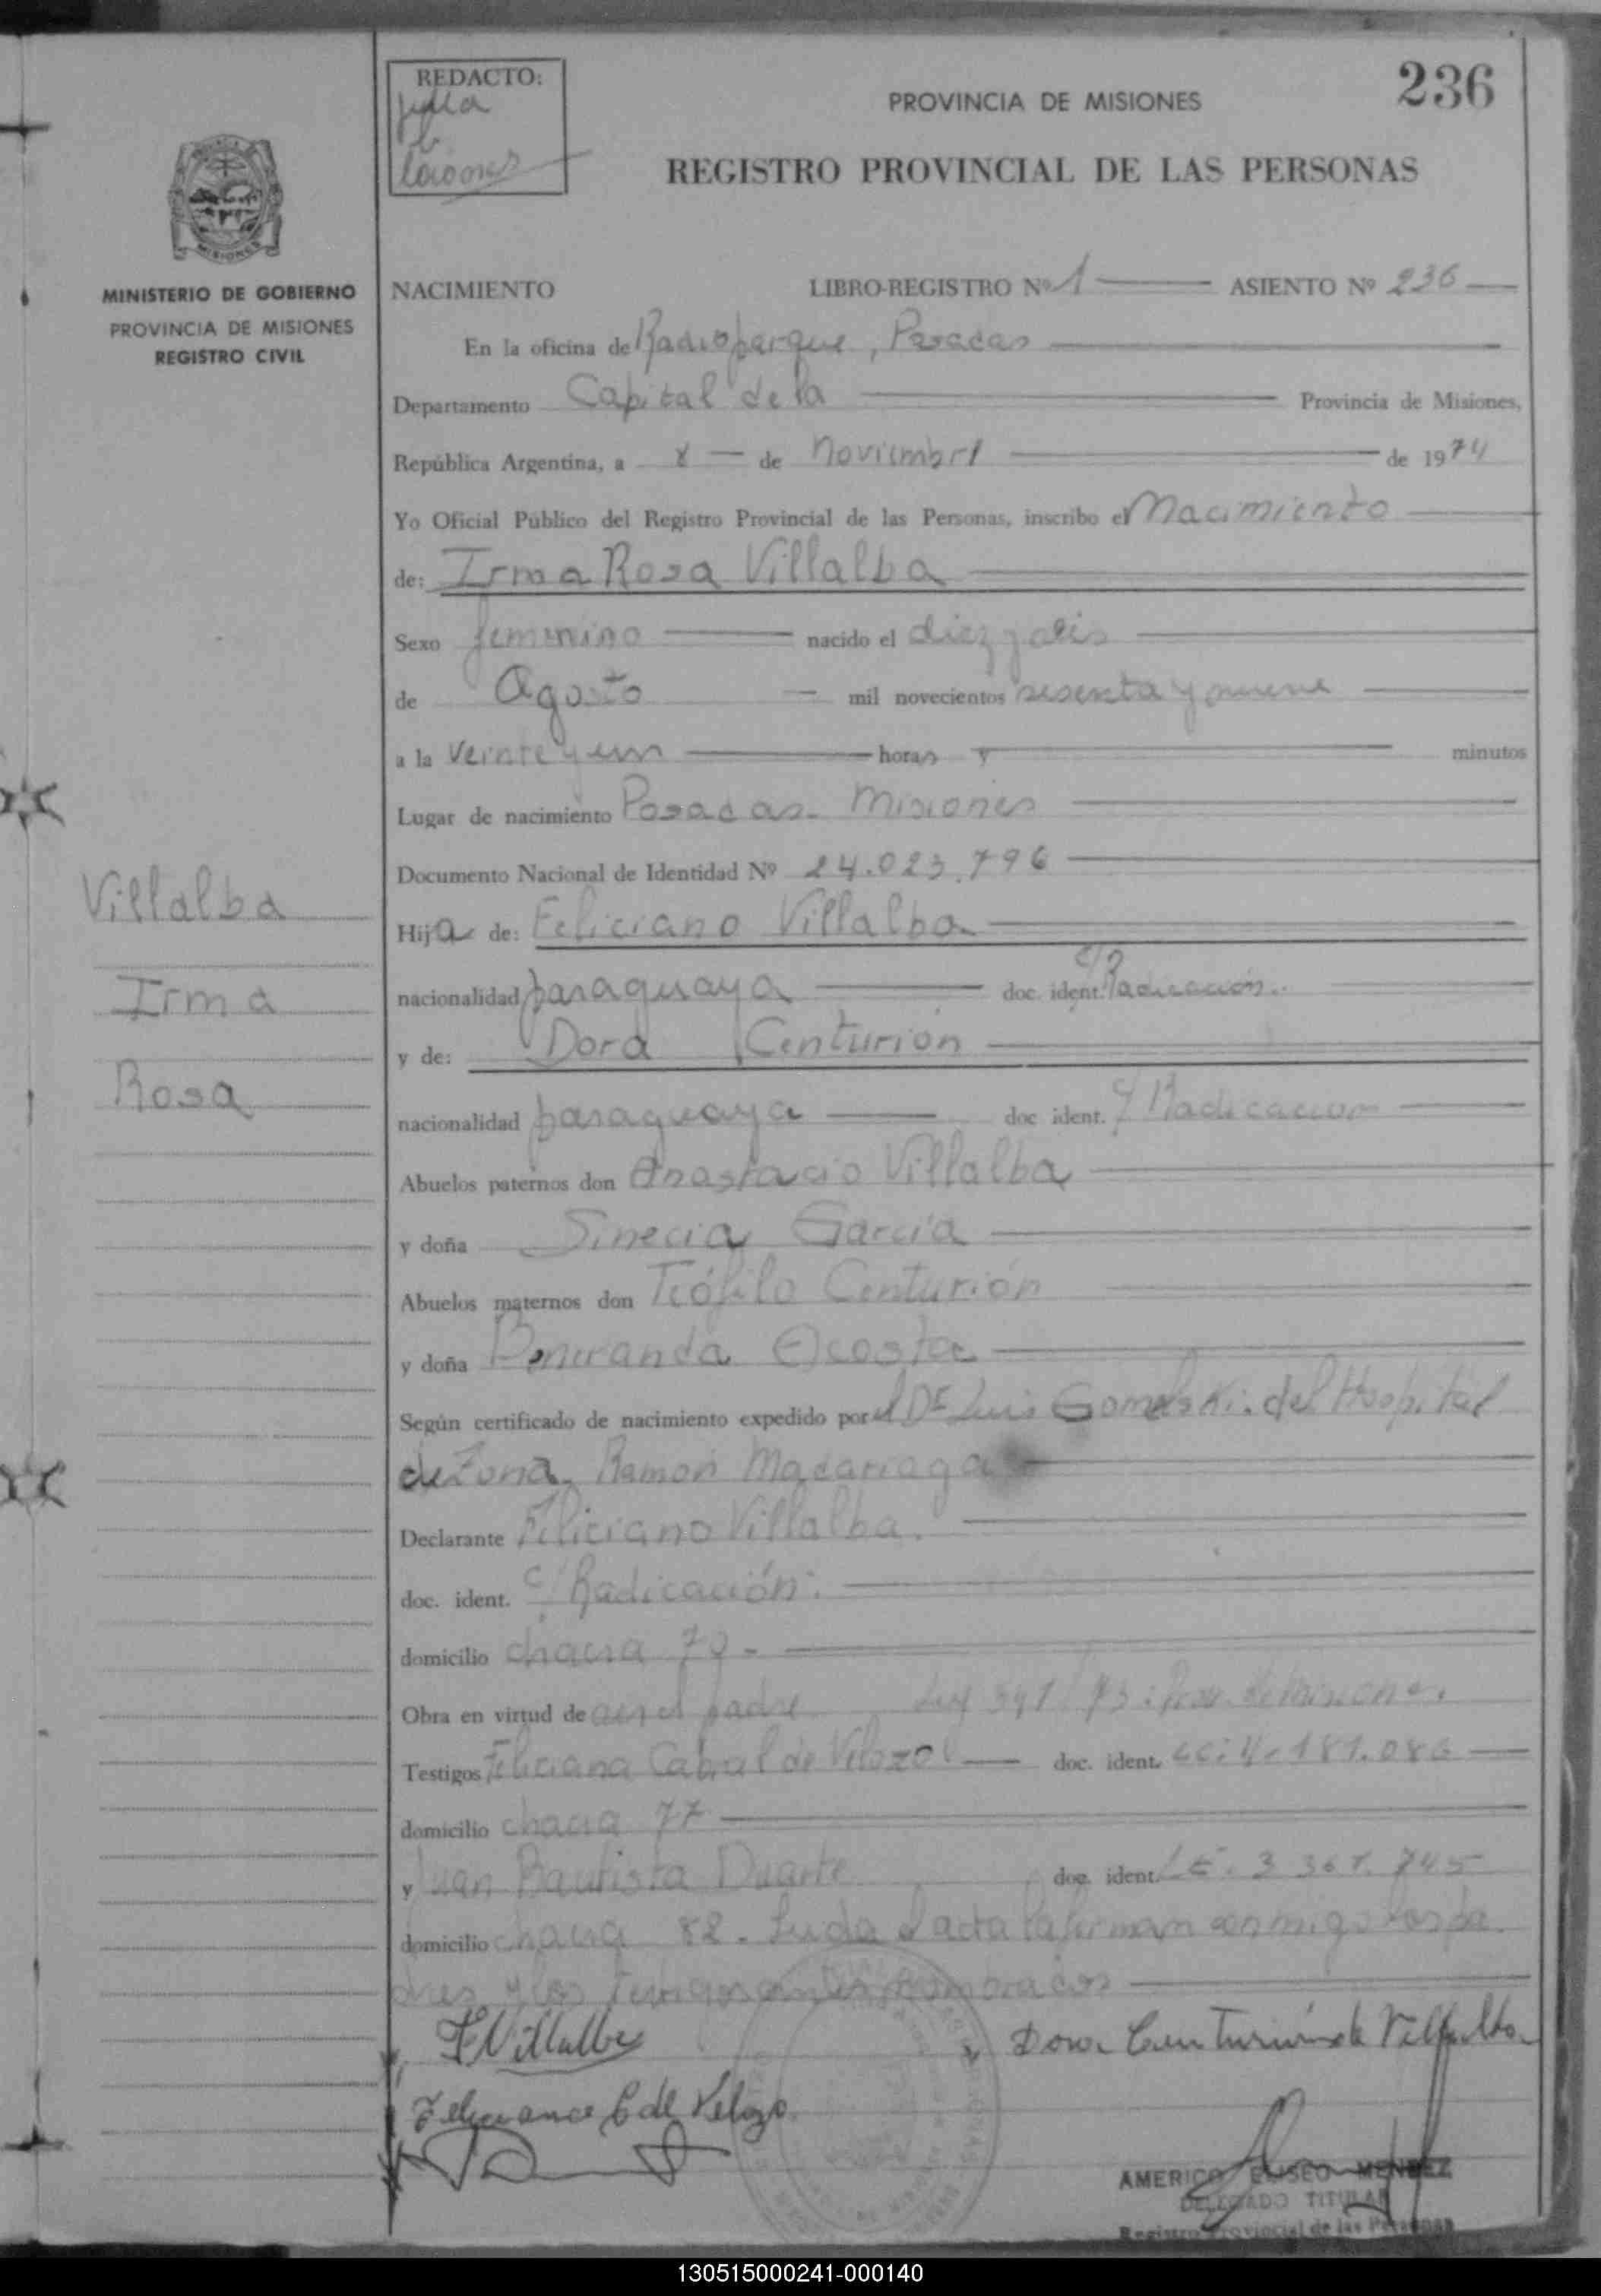 236
REDACTO:
PROVINCIA DE MISIONES
REGISTRO PROVINCIAL DE LAS PERSONAS
MISIONES
MINISTERIO DE GOBIERNO
PROVINCIA DE MISIONES
REGISTRO CIVIL
NACIMIENTO LIBRO-REGISTRO Nº 1 ASIENTO Nº 236
En la oficina de Radioparque, Posadas
Departamento Capital de la Provincia de Misiones,
República Argentina, a 8 de Noviembre de 1974
Yo Oficial Público del Registro Provincial de las Personas, inscribo el Nacimiento
de: Irma Rosa Villalba
Sexo femenino nacido el
de Agosto mil novecientos sesenta y nueve
a la veinte y un horas y minutos
Lugar de nacimiento Posadas - Misiones
Documento Nacional de Identidad Nº 24.023.796
Villalba
Irma
Rosa
Hija de: Feliciano Villalba
nacionalidad paraguaya doc. ident. C/ Radicación.
y de: Dora Centurión
nacionalidad paraguaya doc ident. C/ Radicacion
Abuelos paternos don Anastacio Villalba
y doña Sinecia García
Abuelos maternos don Teófilo Centurión
y doña Acosta
Según certificado de nacimiento expedido por el Dr Luis del Hospital
de Zona Ramón Madariaga
Declarante Feliciano Villalba.
doc. ident. C/ Radicación.
domicilio chacra 70 -
Obra en virtud de ser el padre Ley
Testigos Feliciana Cabral de Velozo doc. ident. 181.086
domicilio chacra 77
y Juan Bautista Duarte doc. ident. L E. 3 367. 745
domicilio chacra 82. Leida el acta la firman conmigo los pa
dres y los testigos antes nombrados
F Villalba Dora Centurión de Villalba
Feliciana C de Velozo
AMERICO ELISEO MENDEZ
DELEGADO TITULAR
Registro Provincial de las Personas
130515000241-000140